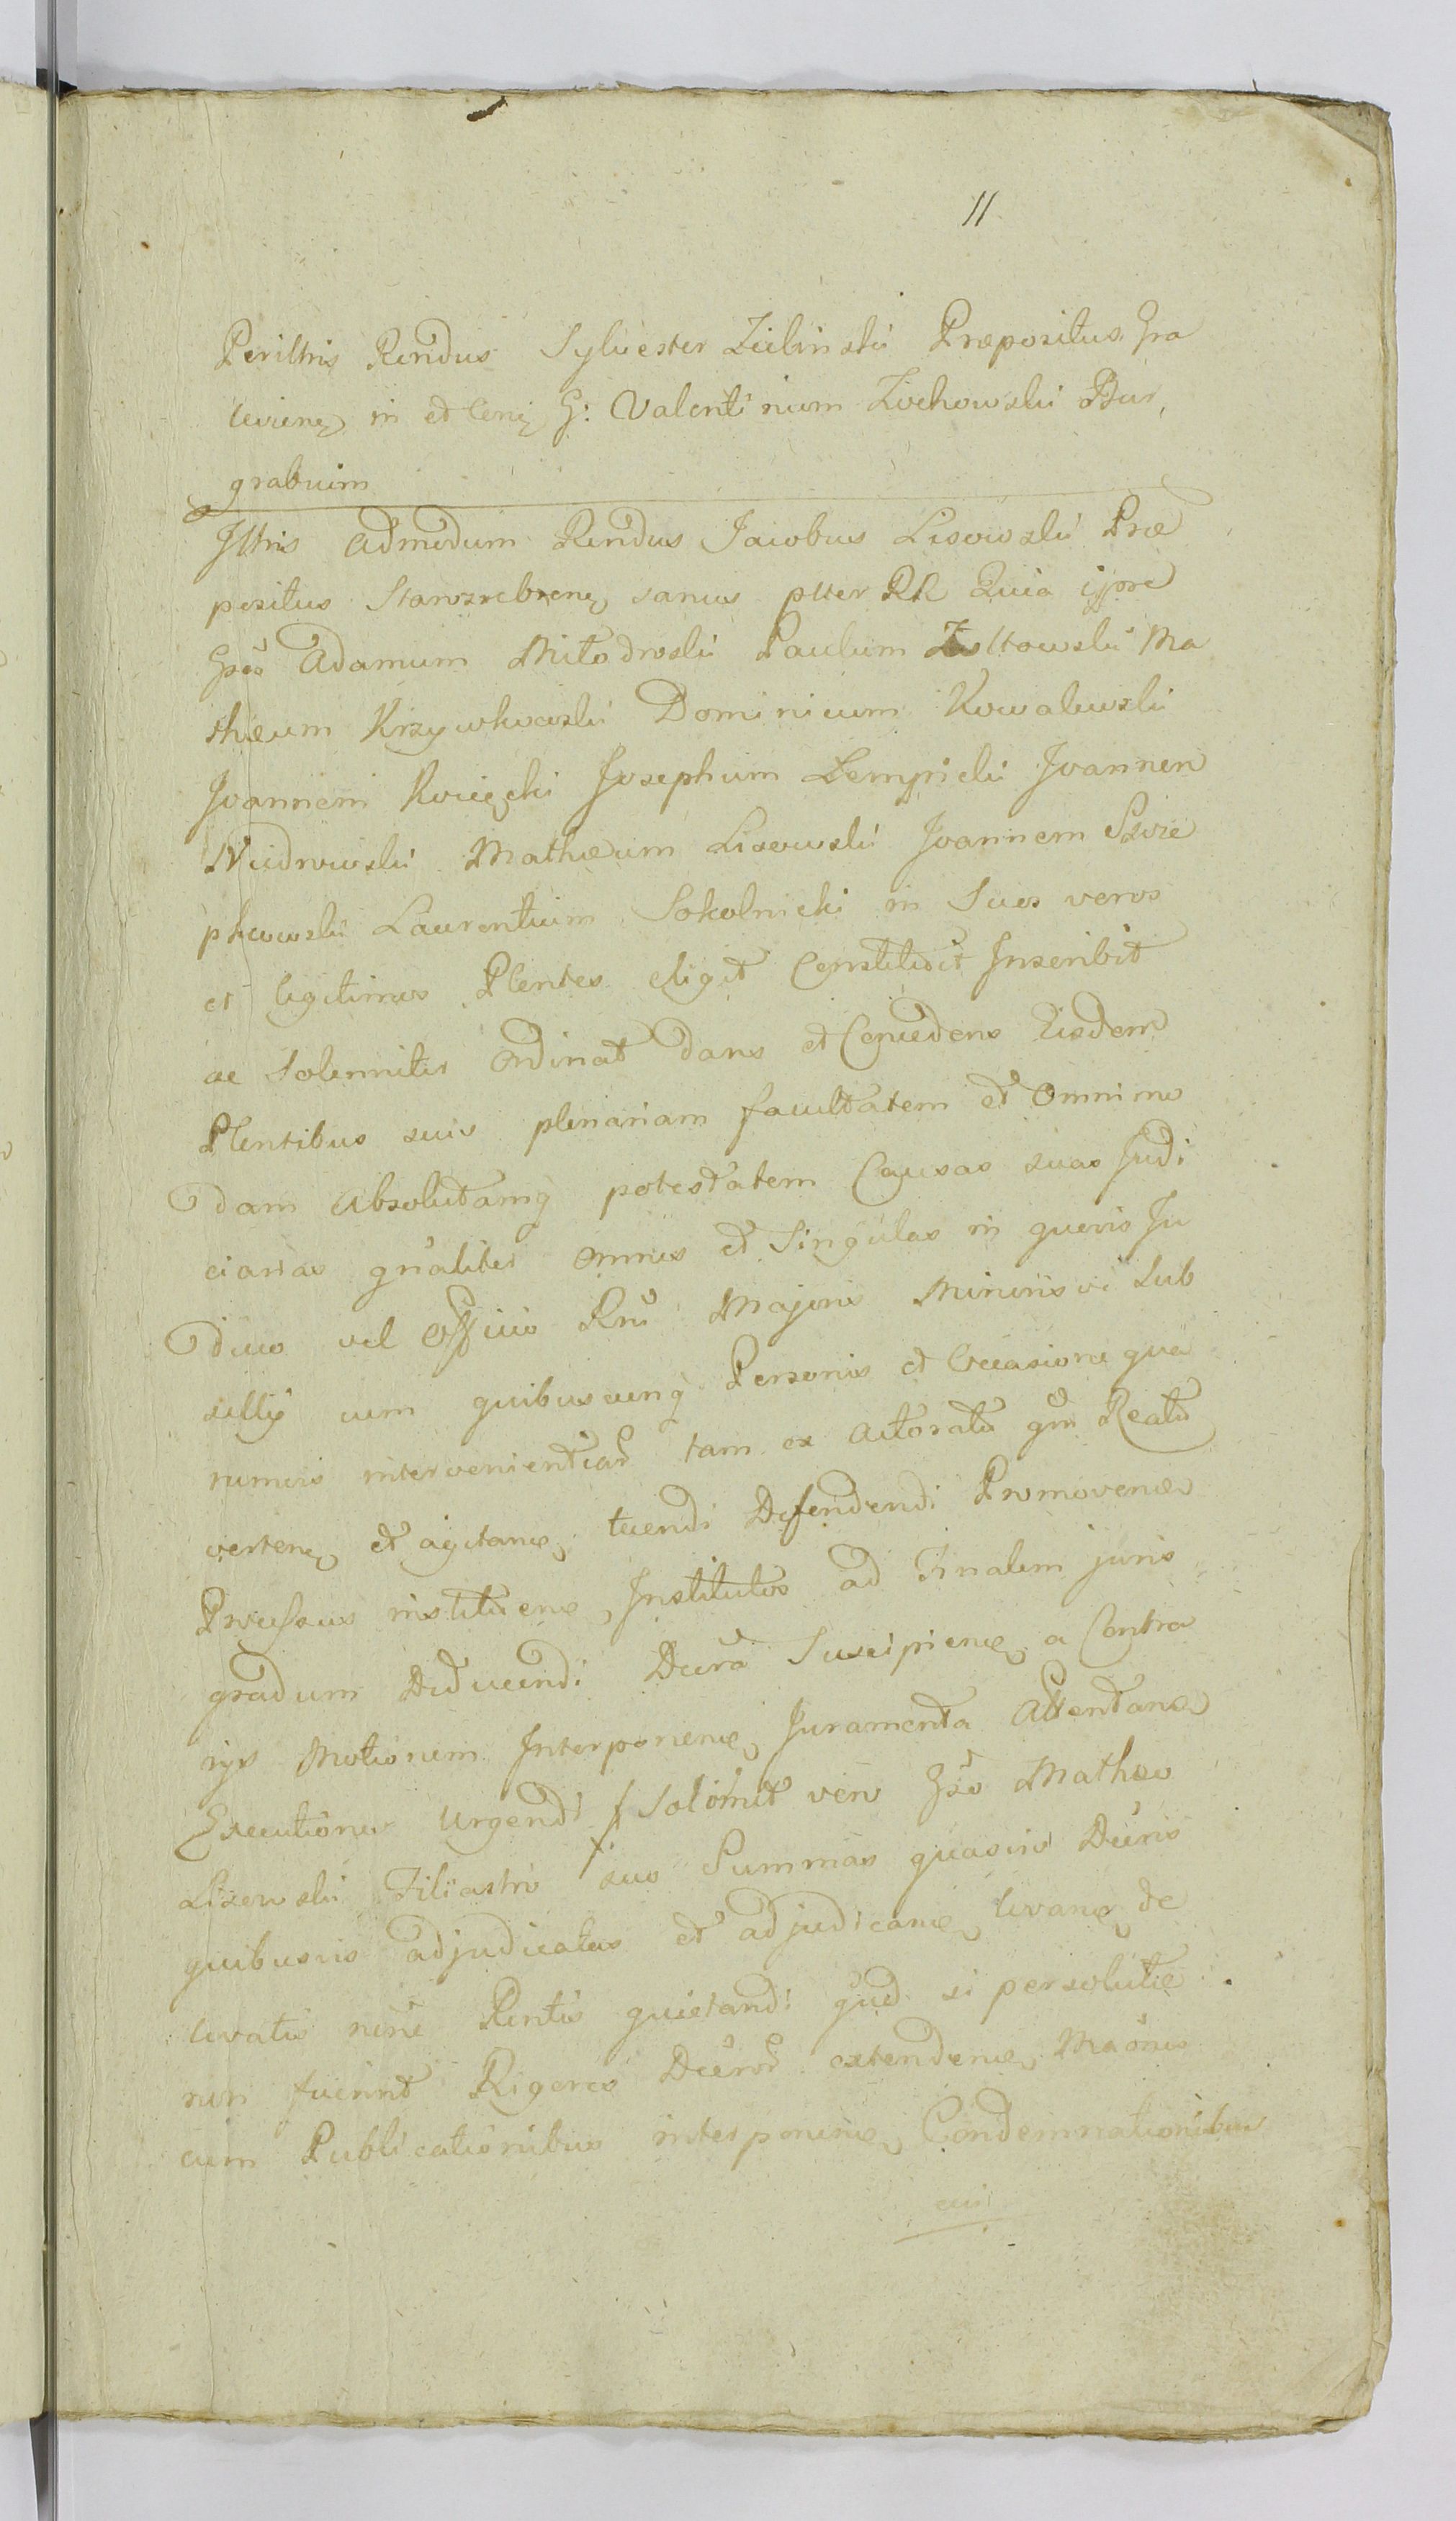 11
Perilltris Rendus Sylvester Zieliński Præpositus Gra
levienę in et Conę G: Valentinum Żochowski Bur,
grabium
Illtris Admodum Rendus Jacobus Lisowski Præ
positus Staroźrebsenę sanus ptter RR Quia ippe
Gsos Adamum Miłodroski Paulum Zołtowski Ma
thæum Krzywkowski Dominicum Kowalewski
Joannem Kocięcki Josephum Lempicki Joannem
Niedrowski Mathæum Lisowski Joannem
Laurentium Sokolnicki in Suos veros
et legitimos Plentes eligit Constituit Inscribit
ac Solenniter Ordinat dans et Concedens Eisdem
Plentibus suis plenariam facultatem et Omnimo
dam Absolutamq potestatem Causas suas Judi
ciarias gnaliter omnes et Singulas in quovis Ju
dicio vel Officio Rni Majoris Minorisve Sub
sellij cum quibuscunq Personis et Occasione qua
rumvis intervenientiar tam ex Actoratu qm Reatu
verten et agitan, tuendi Defendendi Promovenæ
Processus instituenæ Institutos ad Finalem juris
gradum Deducendi Decra Suscipienæ a Contra
rijs Motionem Interponenæ Juramenta Attentanæ
Executiones Urgendi Solomet vero Gso Mathæo
Lisowski Filiastro suo Summas quasvis Decris
quibusvis adjudicatas et adjudicanæ levanæ de
levatis nene Rentis quietandi qud si persolutæ
non fuerint Rigores Decror extendenæ Maônes
cum Publicationibus interponenæ Condemnationibus